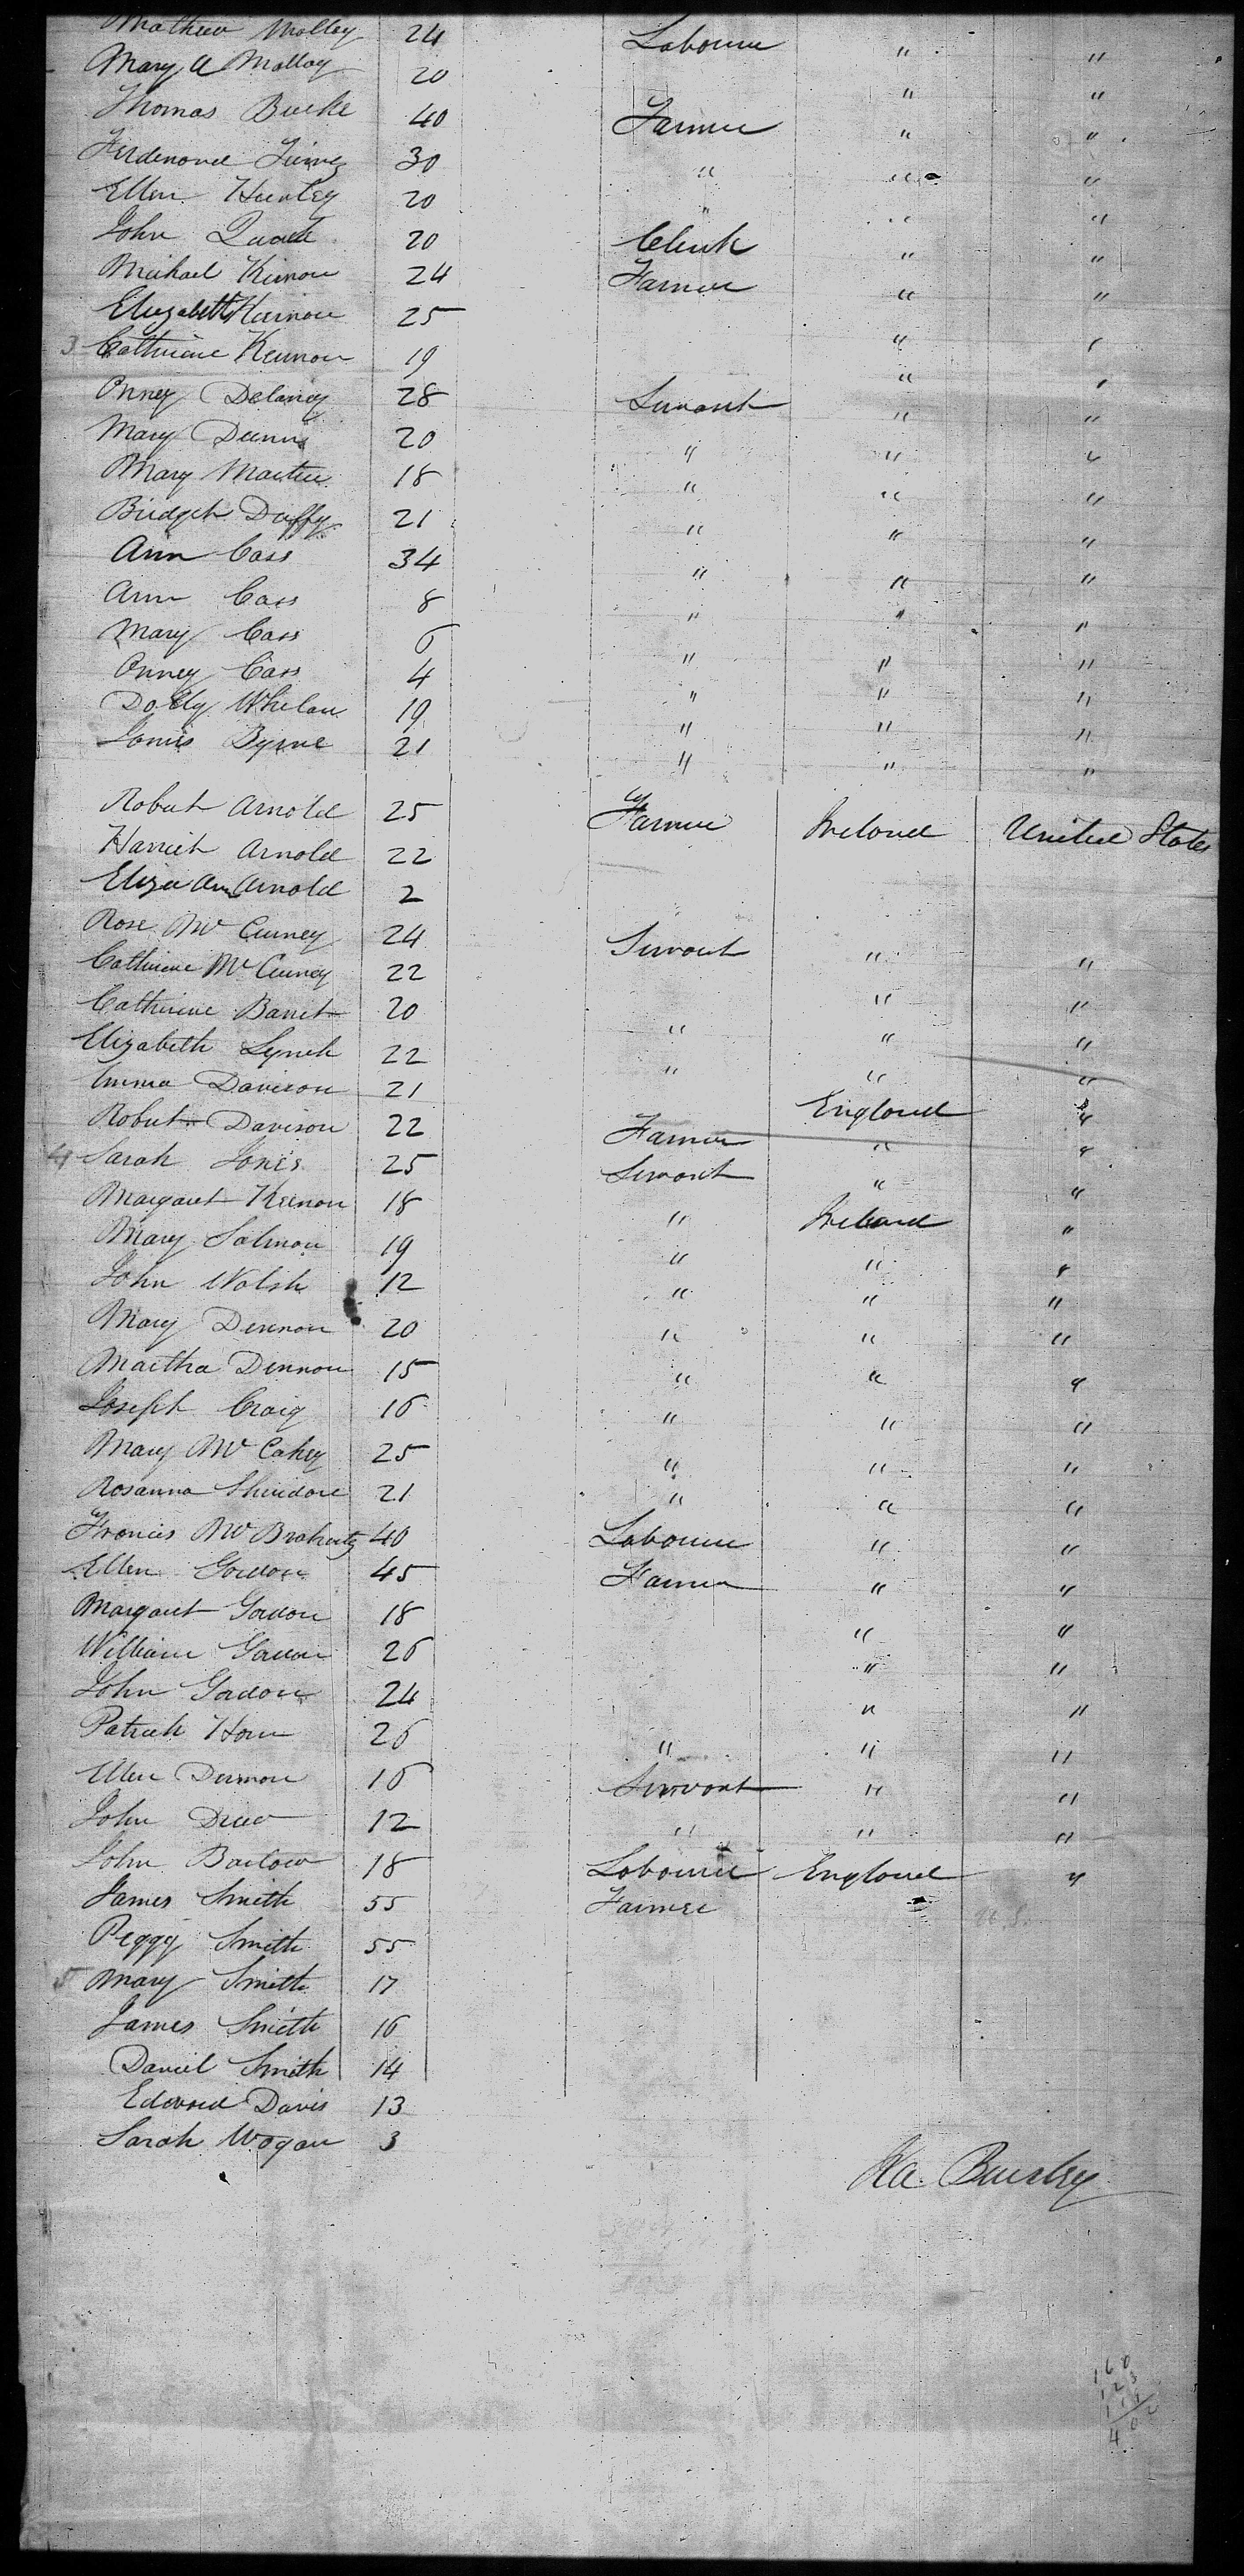 Mathew Molloy 24 Labourer " "
Mary A Molloy 20 " "
Thomas Burke 40 Farmer " "
30 " " "
Ellen Hurley 20 " " "
John 20 Clerk " "
Michael Kiernon 24 Farmer " "
Elizabeth Kiernon 25 " "
3 Catherine Kiernon 19 " "
Anney Delaney 28 Servant " "
Mary Dunn 20 " " "
Mary Martin 18 " " "
Bridget Duffy 21 " " "
Ann Cass 34 " " "
Ann Cass 8 " " "
Mary Cass 6 " " "
Anney Cass 4 " " "
Dolly Whelan 19 " " "
James Byrne 21 " " "
Robert Arnold 25 Farmer Ireland United States
Harriet Arnold 22
Eliza Ann Arnold 2
Rose Mc 24 Servant " "
Catherine Mc 22 " "
Catherine Barret 20 " " "
Elizabeth Lynch 22 " " "
Emma Davison 21 England "
Robert Davison 22 Farmer " "
4 Sarah Jones 25 Servant " "
Margaret Kiernon 18 " Ireland "
Mary Salmon 19 " " "
John Walsh 12 " " "
Mary Dennon 20 " " "
Martha Dennon 15 " " "
Joseph Craig 16 " " "
Mary McCahey 25 " " "
Rosanna Sheridore 21 " " "
Francis Mc 40 Labourer " "
Ellen Gordon 45 Farmer " "
Margaret Gordon 18 " "
William Gordon 26 " "
John Gordon 24 " "
Patrick Horn 26 " " "
Ellen Dermon 16 Servant " "
John Drew 12 " " "
John Barlow 18 Labourer England "
James Smith 55 Farmer U.S.
Peggy Smith 55
5 Mary Smith 17
James Smith 16
Daniel Smith 14
Edward Davis 13
Sarah Wogan 3
Ira Bursley
160
123
402